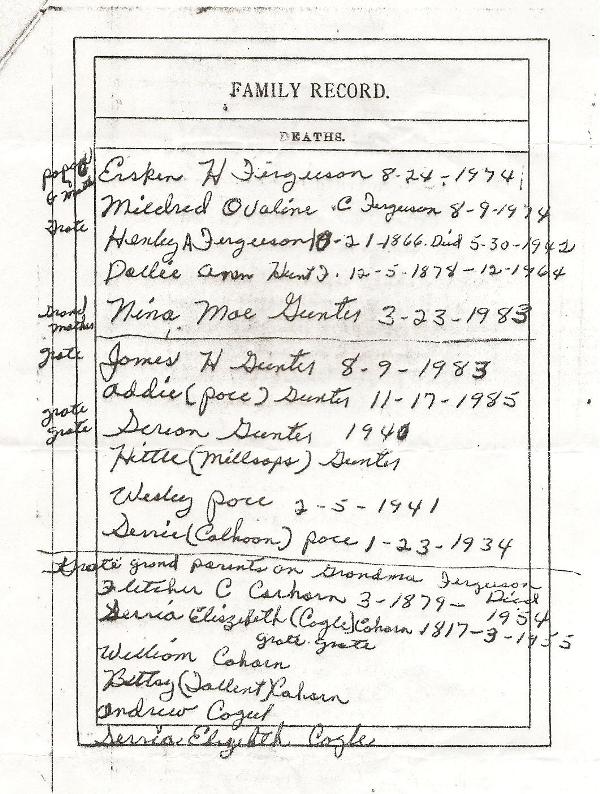 FAMILY RECORD.
DEATHS.
Ersken H Ferguson 8-24-1974
Mildred Ovaline C Ferguson 8-9-1974
grate
Henley A Ferguson 10-21-1866. Died 5-30-1942
Dollie Ann Hunt F. 12-5-1878-12-1964
Grand mother
Nina Mae Gunter 3-23-1983
grate
James H Gunter 8-9-1983
Addie (poce) Gunter 11-17-1985
grate grate
Gunter 1940
Hittie (Millsaps) Gunter
Wesley poce 2-5-1941
(Calhoon) poce 1-23-1934
Grate grand parents on Grandma Ferguson
Fletcher C Corhorn 3-1879- Died 1954
Eliszebeth (Cogle) Cohorn 1817-3-1955
grate grate
William Cohorn
Betty (Dallent) Cohorn
Andrew Cogul
Elizibeth Cogle